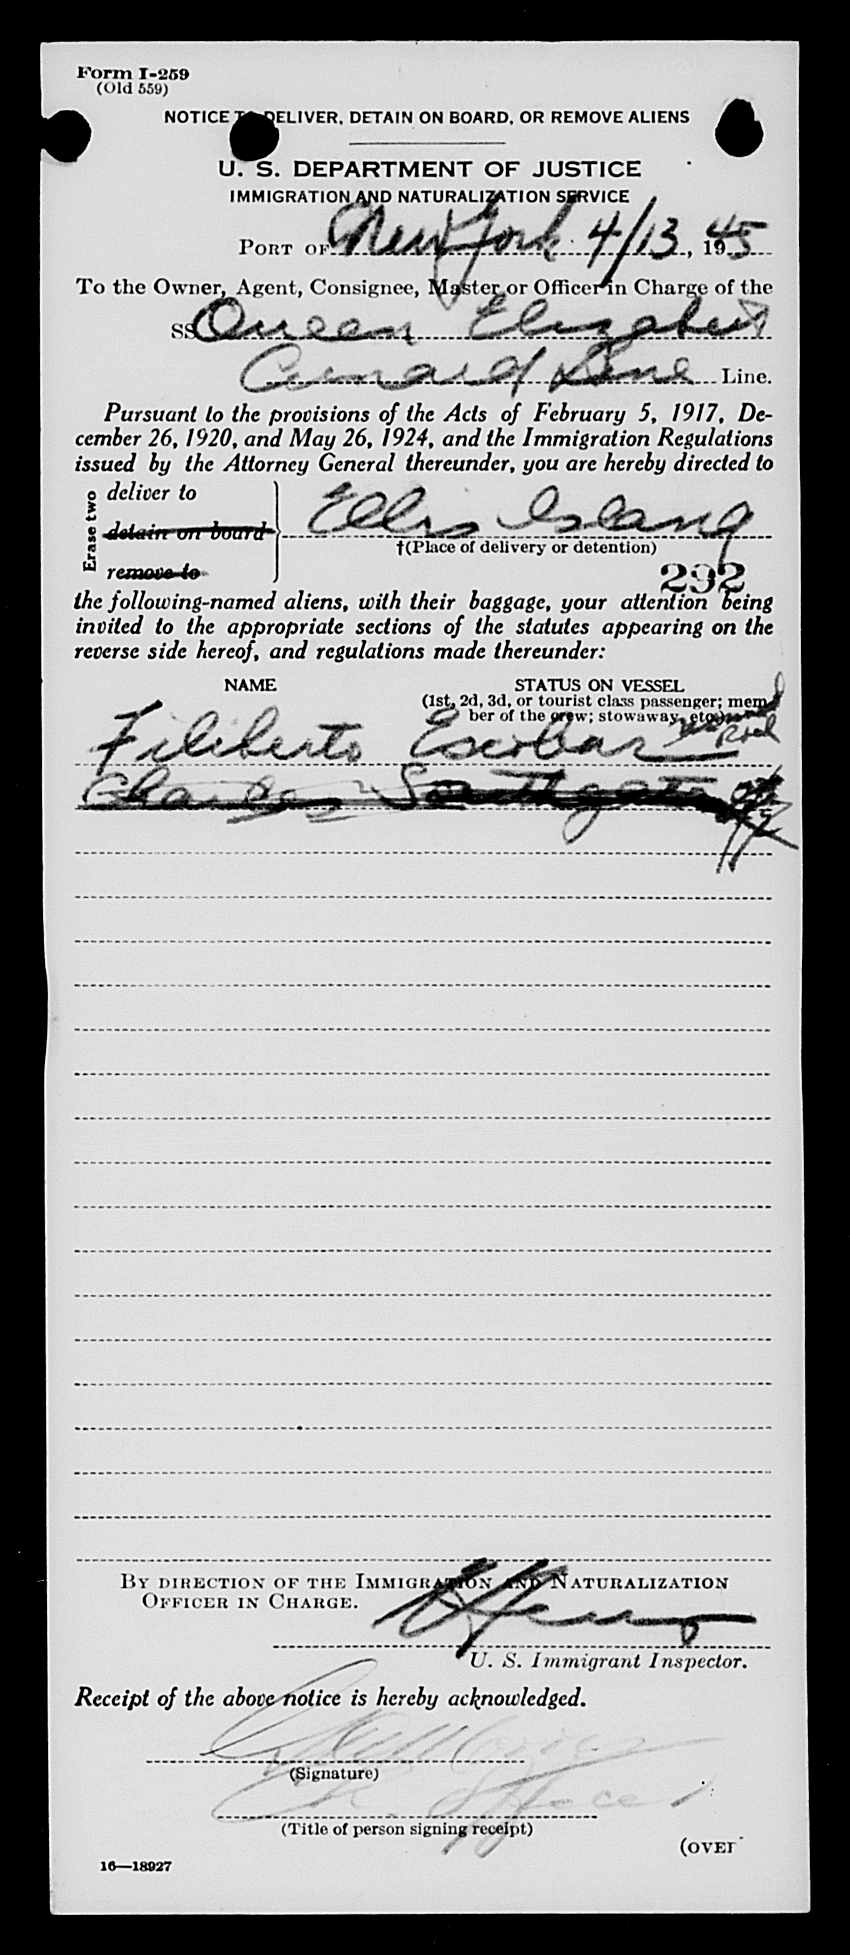 Form I-259
(Old 559)
NOTICE TO DELIVER, DETAIN ON BOARD, OR REMOVE ALIENS
U. S. DEPARTMENT OF JUSTICE
IMMIGRATION AND NATURALIZATION SERVICE
PORT OF New York 4/13, 1945
To the Owner, Agent, Consignee, Master or Officer in Charge of the
SS Queen Elizabeth
Cunard Line Line.
Pursuant to the provisions of the Acts of February 5, 1917, De-
cember 26, 1920, and May 26, 1924, and the Immigration Regulations
issued by the Attorney General thereunder, you are hereby directed to
Erase two
deliver to
detain on board
remove to
Ellis Island
†(Place of delivery or detention)
292
the following-named aliens, with their baggage, your attention being
invited to the appropriate sections of the statutes appearing on the
reverse side hereof, and regulations made thereunder:
NAME STATUS ON VESSEL
(1st, 2d, 3d, or tourist class passenger; mem-
ber of the crew; stowaway, etc.)
Filiberto Escobar
Charles Southgate
BY DIRECTION OF THE IMMIGRATION AND NATURALIZATION
OFFICER IN CHARGE.
U. S. Immigrant Inspector.
Receipt of the above notice is hereby acknowledged.
(Signature)
Ch. Officer
(Title of person signing receipt)
(OVER
16—18927